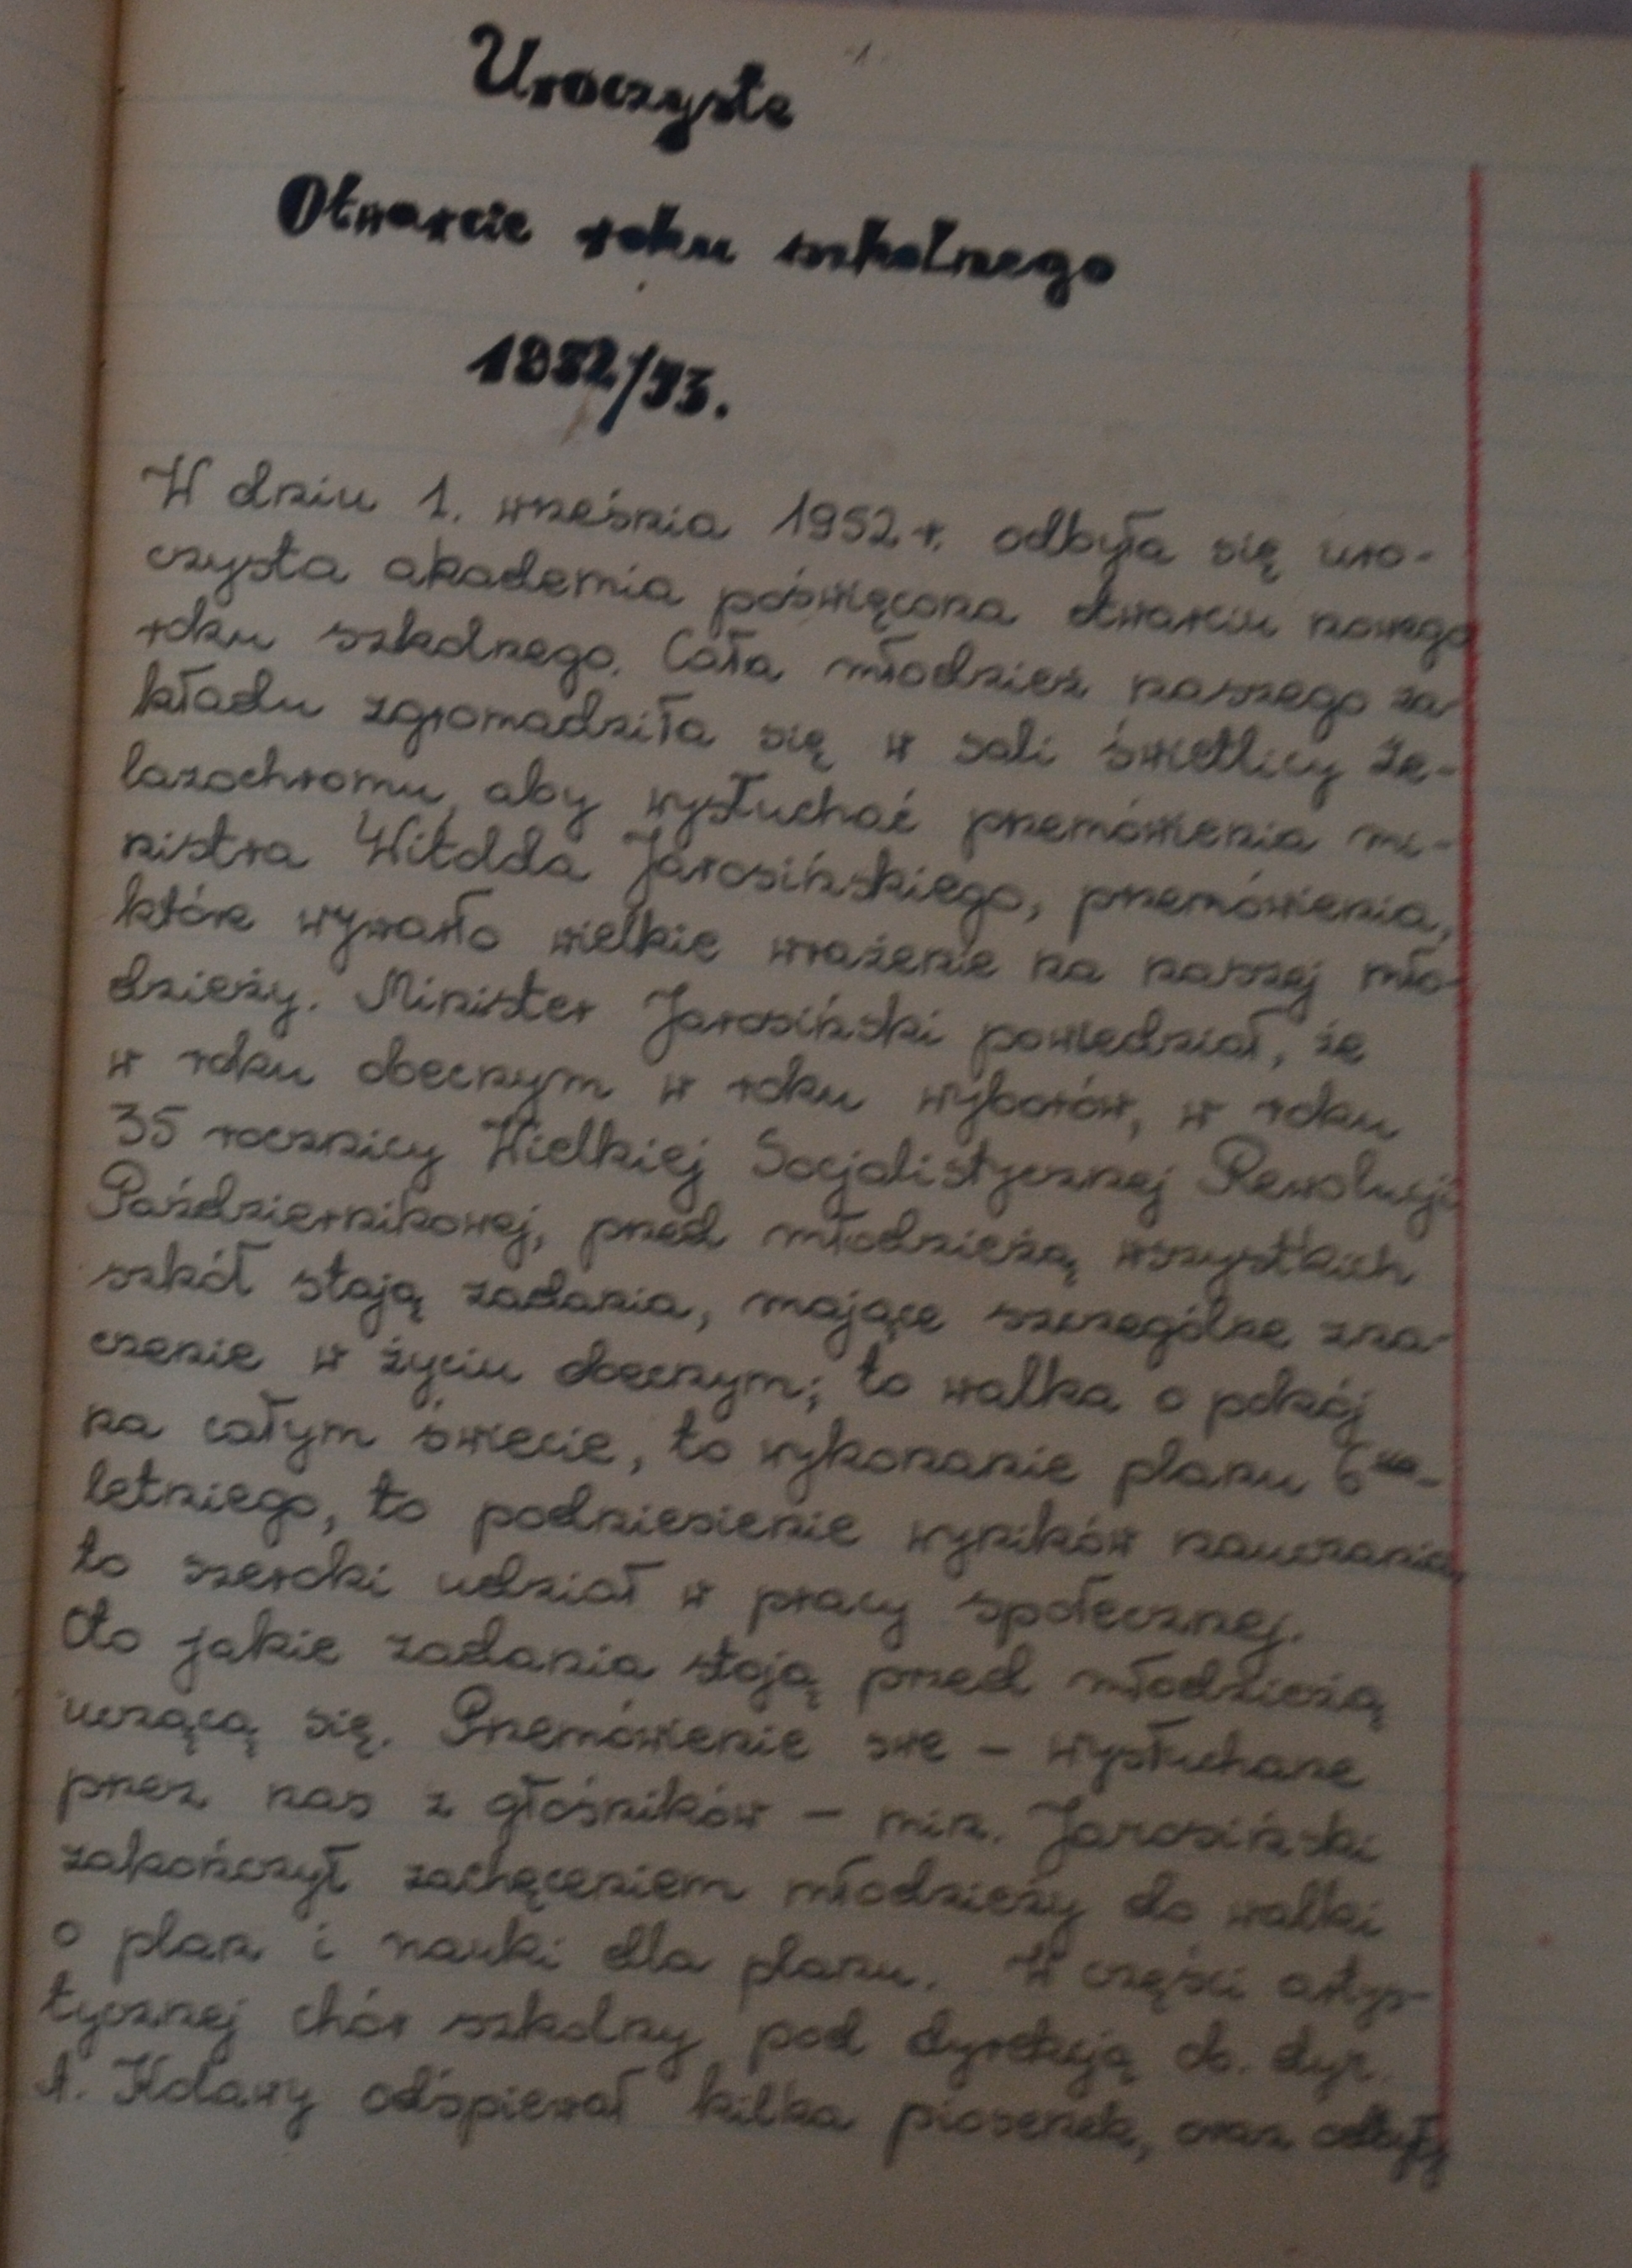 -1-
Uroczyste
Otwarcie roku szkolnego
1952/53.
W dniu 1. września 1952 r. odbyła się uro-
czysta akademia poświęcona otwarciu nowego
roku szkolnego. Cała młodzież naszego za-
kładu zgromadziła się w sali świetlicy Że-
lazochromu, aby wysłuchać przemówienia mi-
nistra Witolda Jarosińskiego, przemówienia,
które wywarło wielkie wrażenie na naszej mło-
dzieży. Minister Jarosiński powiedział, że
w roku obecnym w roku wyborów, w roku
35 rocznicy Wielkiej Socjalistycznej Rewolucji
Październikowej, przed młodzieżą wszystkich
szkół stają zadania, mające szczególne zna-
czenie w życiu obecnym; to walka o pokój
na całym świecie, to wykonanie planu 6-
letniego, to podniesienie wyników nauczania,
to szeroki udział w pracy społecznej.
Oto jakie zadania stoją przed młodzieżą
uczącą się. Przemówienie swe – wysłuchane
przez nas z głośników – min. Jarosiński
zakończył zachęceniem młodzieży do walki
o plan i nauki dla planu. W części artys-
tycznej chór szkolny pod dyrekcją ob. dyr.
A. Kolawy odśpiewał kilka piosenek, oraz odbyły